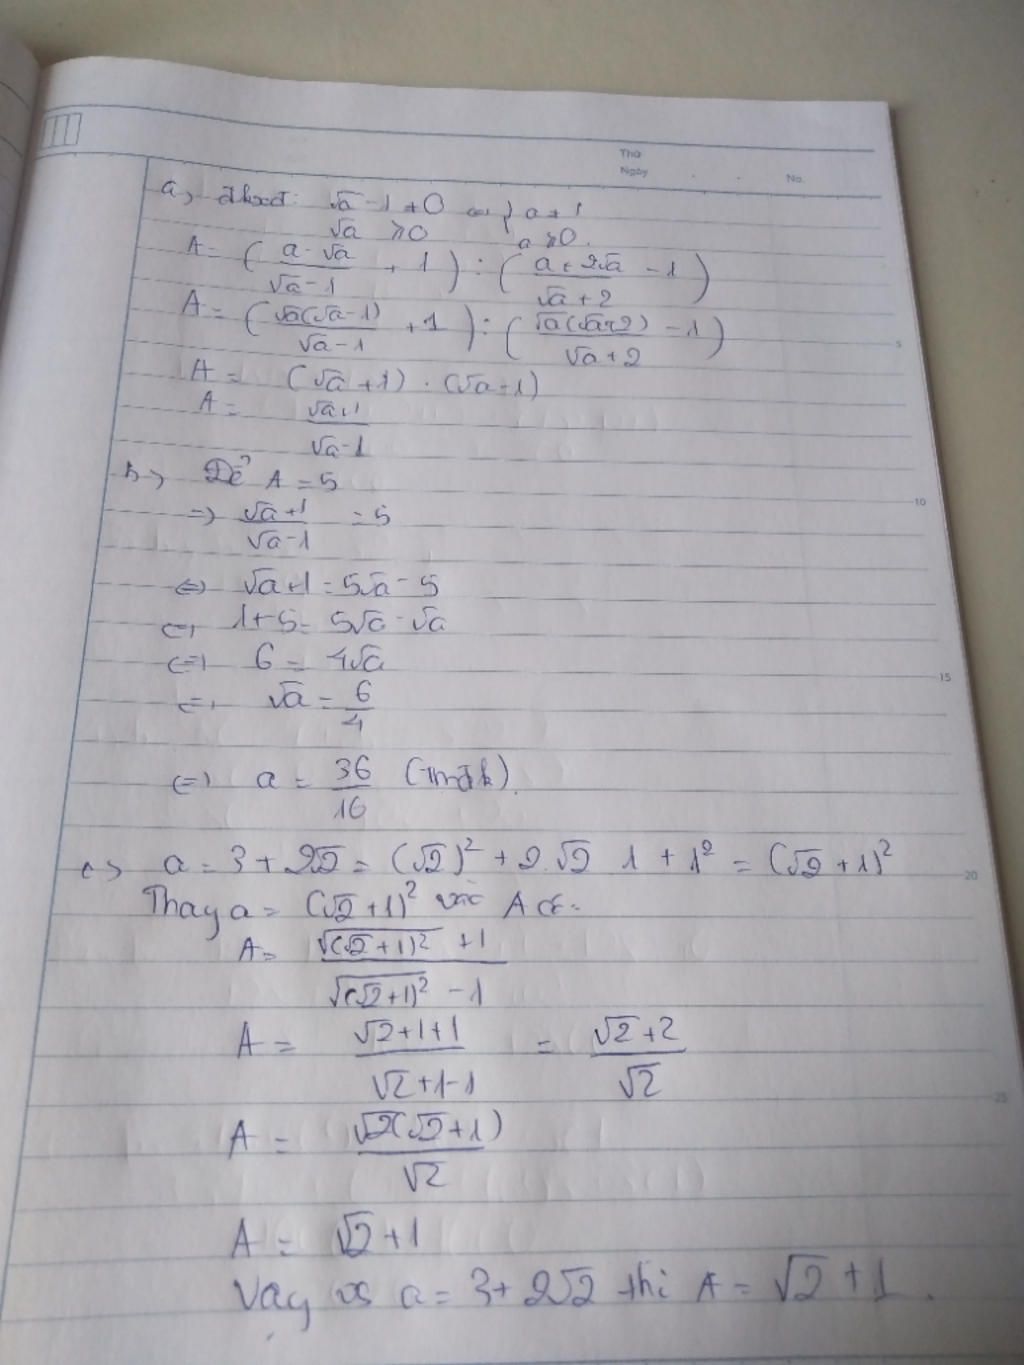 Thứ
Ngày No.
a, đkxđ: √a - 1 ≠ 0 <=> { a ≠ 1
√a ≥ 0 a ≥ 0.
A = ( (a - √a)/(√a - 1) + 1 ) : ( (a + 2√a)/(√a + 2) - 1 )
5
A = ( √a(√a - 1)/(√a - 1) + 1 ) : ( √a(√a + 2)/(√a + 2) - 1 )
A = (√a + 1) : (√a - 1)
A = (√a + 1)/(√a - 1)
b, Để A = 5
10
=> (√a + 1)/(√a - 1) = 5
<=> √a + 1 = 5√a - 5
<=> 1 + 5 = 5√a - √a
<=> 6 = 4√a
15
<=> √a = 6/4
<=> a = 36/16 (tmđk).
c, a = 3 + 2√2 = (√2)² + 2.√2 1 + 1² = (√2 + 1)²
20
Thay a = (√2 + 1)² vào A có:
A = (√(√2 + 1)² + 1)/(√(√2 + 1)² - 1)
A = (√2 + 1 + 1)/(√2 + 1 - 1) = (√2 + 2)/√2
25
A = √2(√2 + 1)/√2
A = √2 + 1
Vậy vs a = 3 + 2√2 thì A = √2 + 1.